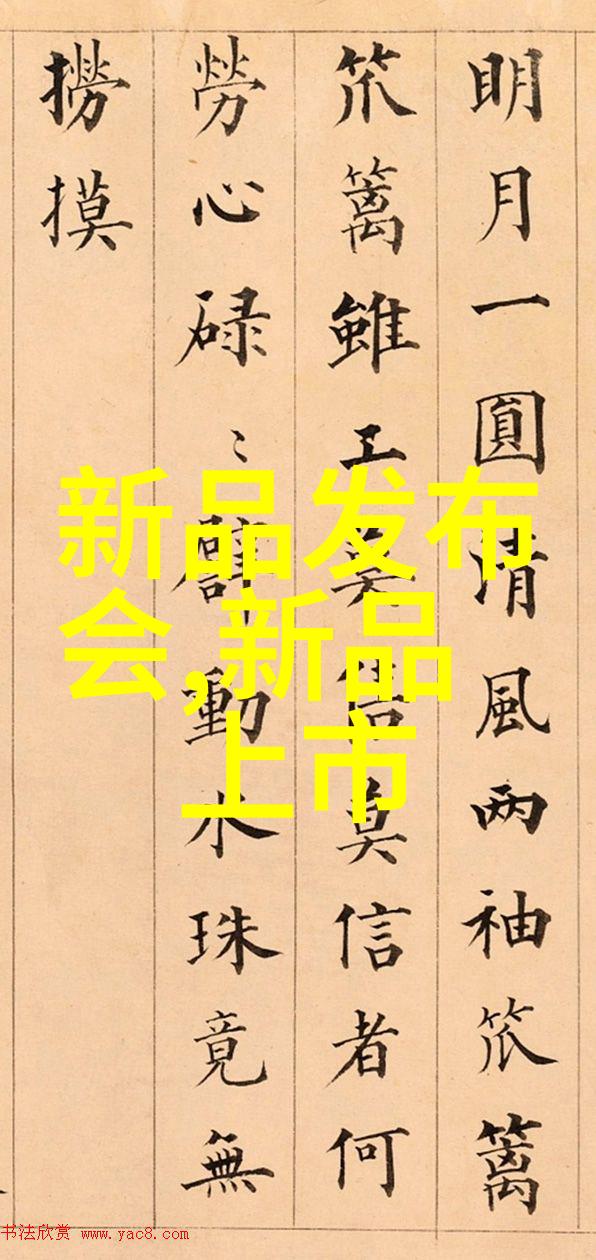 明月一圓清風两袖笊篱
笊篱雖莫信者何
勞心碌〻動水珠竟無
撈摸
新品发布
会,新品
上市
书法欣赏 www.yac8.com